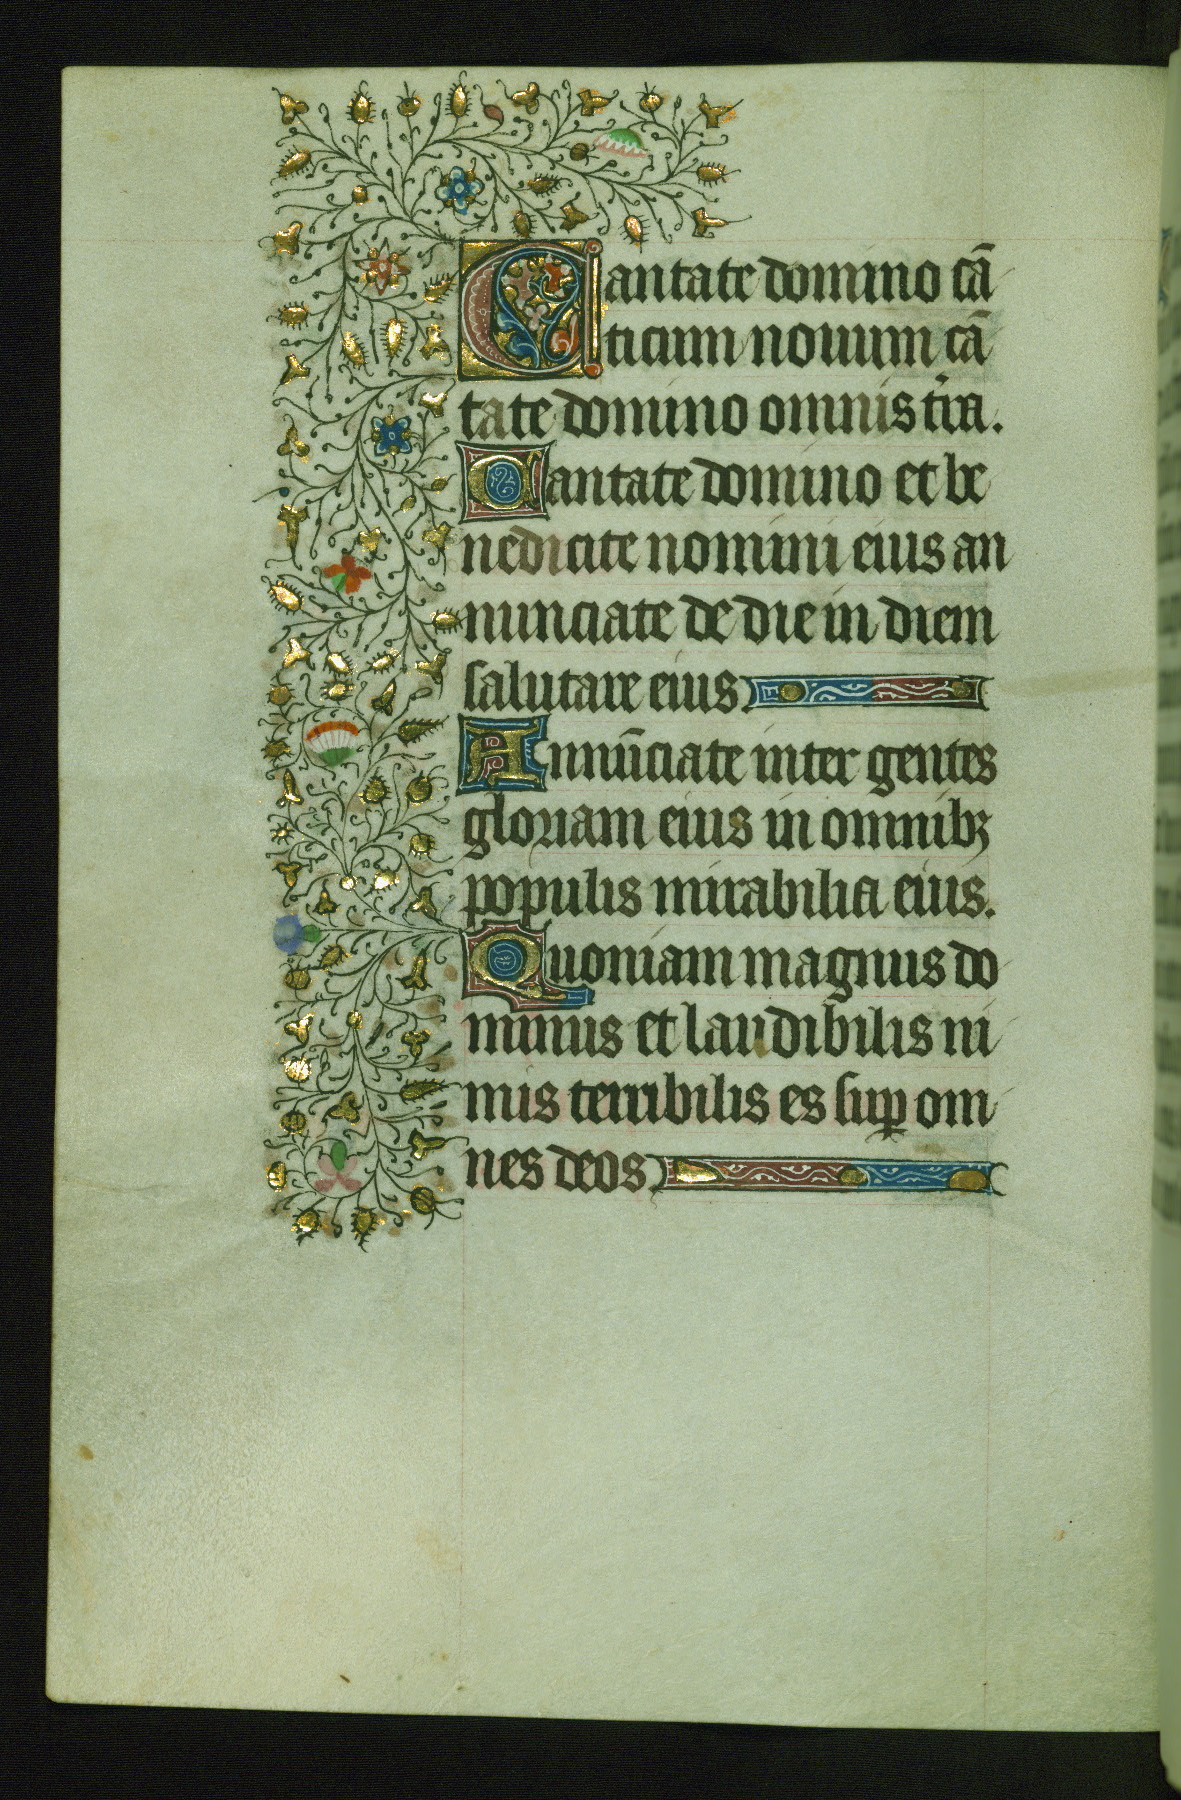 Cantate domino cā
ticum nouum cā
tate domino omnis t̄ra.
Cantate domino et be
nedicite nomini eius an
nunciate de die in diem
salutare eius
Annūciate inter gentes
gloriam eius in omnibꝫ
populis mirabilia eius.
Quoniam magnus do
minus et laudibilis ni
mis terribilis es suꝑ om
nes deos